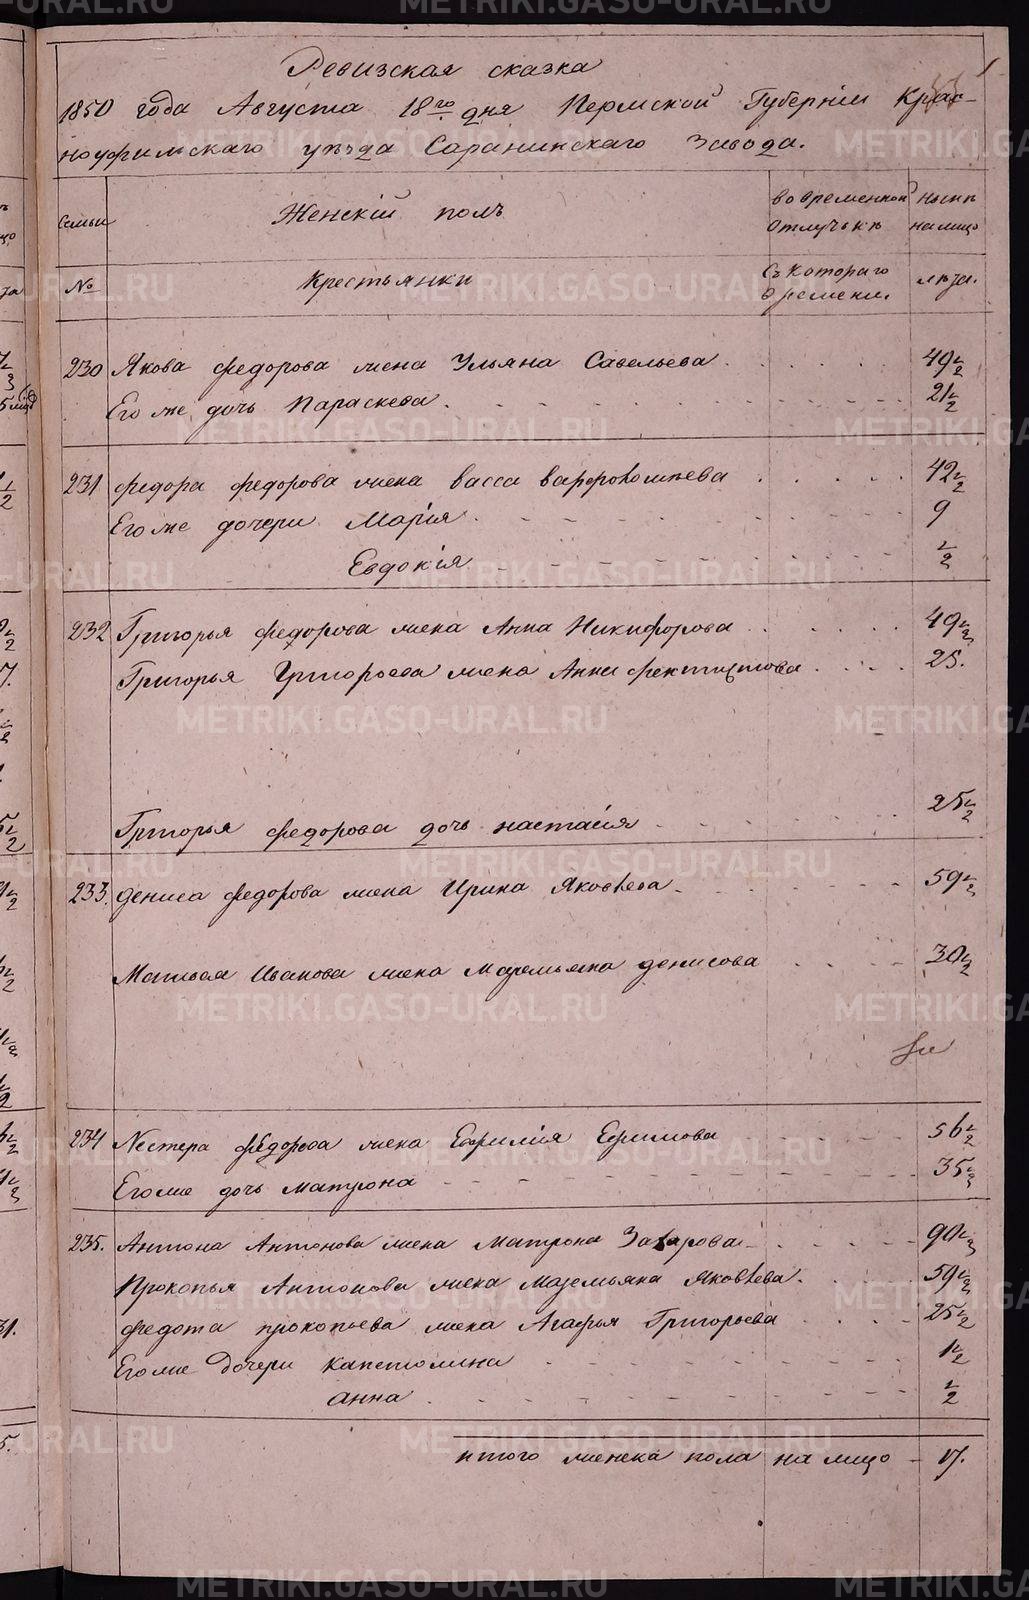 Ревизская сказка
1850 года Августа 18го дня Пермской Губернiи Крас-
ноуфимскаго уѣзда Саранинскаго Завода.
Семьи
Женскiй полъ
во временной
отлучькѣ
нынѣ
налицо
№
Крестьянки
Съ котораго
времени.
лѣта.
230 Якова федорова жена Ульяна Савельева 49 1/2
Его же дочь Параскева 21 1/2
231 федора федорова жена васса варфоломѣева 42 1/2
Его же дочери Марiя 9
Евдокiя 1/2
232 Григорья федорова жена Анна Никифорова 49 1/2
Григорья Григорьева жена Анна 25.
Григорья федорова дочь настасiя 25 1/2
233. дениса федорова жена Ирина Яковлева 59 1/2
Матвея Иванова жена Маремьяна денисова 30 1/2
234 Нестера федорова жена Евфимiя Ефимова 56 1/2
Его же дочь матрона 35 1/2
235. Антона Антонова жена матрона Захарова 90 1/2
Прокопья Антонова жена маремьяна Яковлева. 59 1/2
федота прокопьева жена Агафья Григорьева 25 1/2
Его же дочери капетолина 1 1/2
анна 1/2
итого женска пола на лицо 17.
METRIKI.GASO-URAL.RU